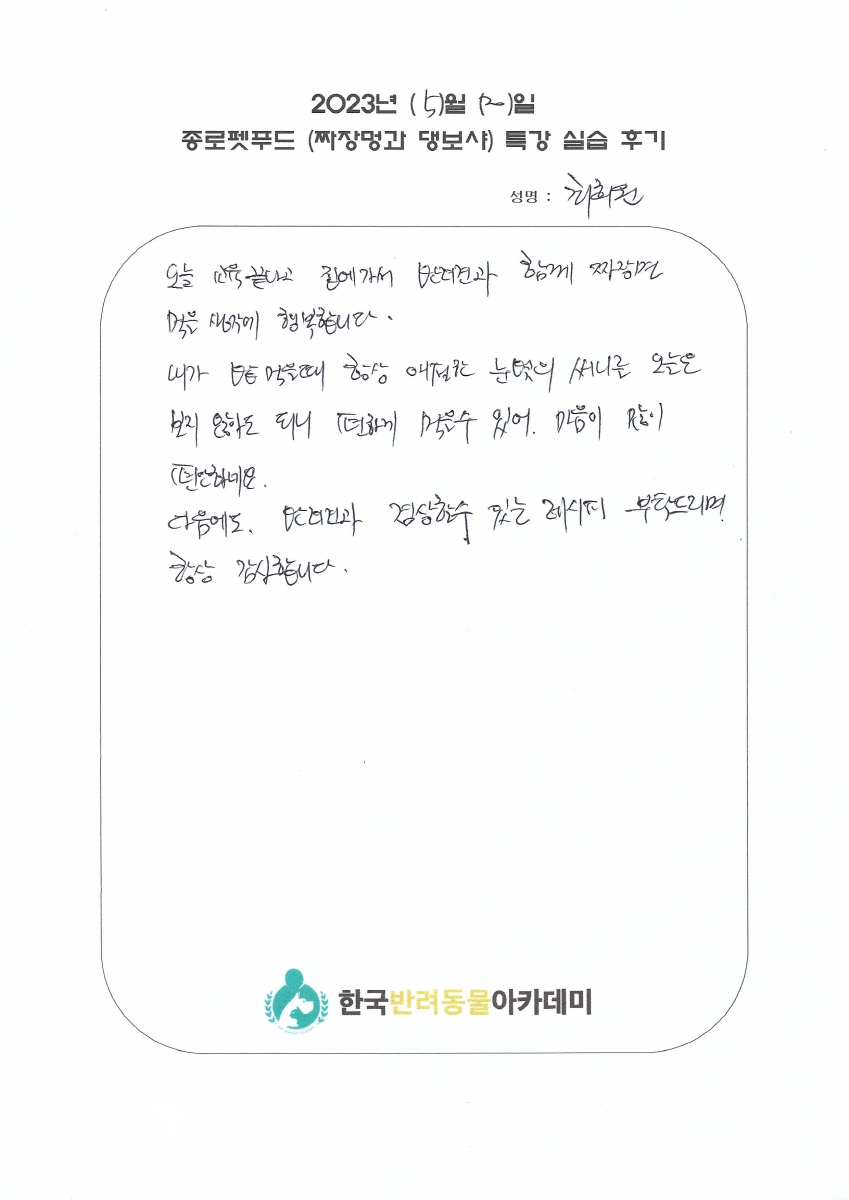 2023년 (5)월 (20)일
종로펫푸드 (짜장멍과 댕보샤) 특강 실습 후기
성명 : 최희원
오늘 교육 끝나고 집에가서 반려견과 함께 짜장면
먹을 생각에 행복합니다.
내가 밥 먹을때 항상 애절한 눈빛의 써니를 오늘은
보지 않아도 되니 편하게 먹을수 있어. 마음이 많이
편안하네요.
다음에도. 반려견과 겸상할수 있는 레시피 부탁드리며
항상 감사합니다.
한국반려동물아카데미